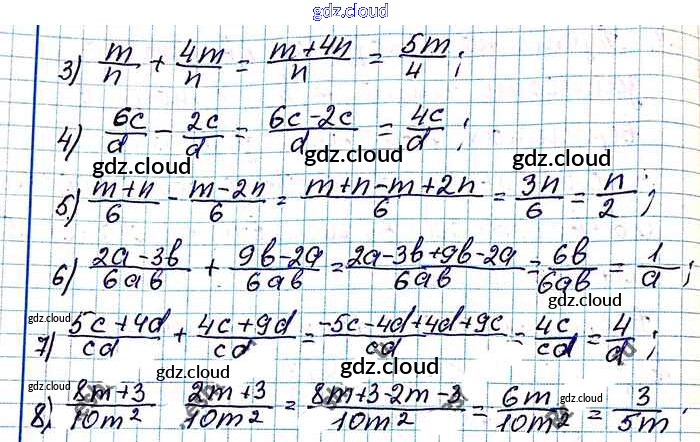 gdz.cloud
3) m/n + 4m/n = m+4n/n = 5m/4;
gdz.cloud gdz.cloud
4) 6c/d - 2c/d = 6c-2c/d = 4c/d;
gdz.cloud gdz.cloud gdz.cloud
5) m+n/6 - m-2n/6 = m+n-m+2n/6 = 3n/6 = n/2;
gdz.cloud
6) 2a-3b/6ab + 9b-2a/6ab = 2a-3b+9b-2a/6ab = 6b/6ab = 1/a;
gdz.cloud gdz.cloud gdz.cloud
7) 5c+4d/cd + 4c+9d/cd = -5c-4d+4d+9c/cd = 4c/cd = 4/d;
gdz.cloud gdz.cloud gdz.cloud gdz.cloud
8) 8m+3/10m² 2m+3/10m² = 8m+3-2m-3/10m² = 6m/10m² = 3/5m.